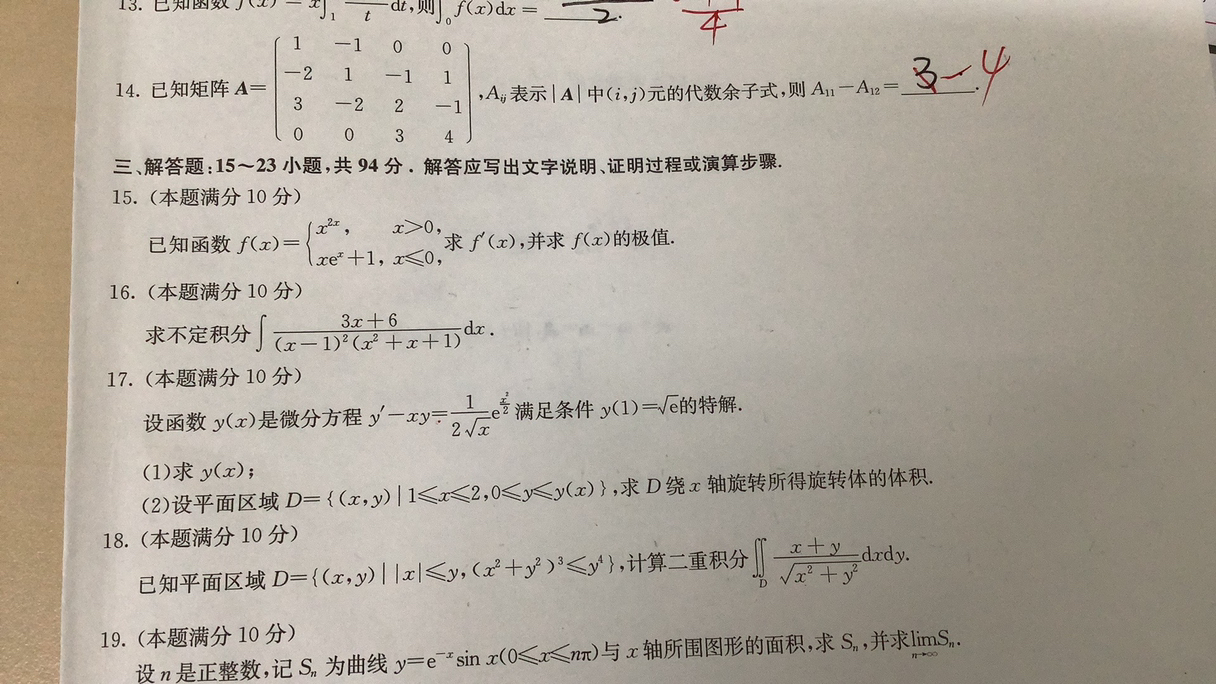 13. 已知函数 f(x) = x∫₁ ‾t dt,则∫₀ f(x)dx = 2.
4
14. 已知矩阵 A=
1 -1 0 0
-2 1 -1 1
3 -2 2 -1
0 0 3 4
,Aᵢⱼ表示|A|中(i,j)元的代数余子式,则 A₁₁-A₁₂= 3 -4 .
三、解答题:15~23 小题,共 94 分. 解答应写出文字说明、证明过程或演算步骤.
15. (本题满分 10 分)
已知函数 f(x)={x²ˣ, x>0, xeˣ+1, x≤0, 求 f′(x),并求 f(x)的极值.
16. (本题满分 10 分)
求不定积分∫(3x+6)/((x-1)²(x²+x+1))dx.
17. (本题满分 10 分)
设函数 y(x)是微分方程 y′-xy=1/(2√x)e^(x²/2)满足条件 y(1)=√e的特解.
(1)求 y(x);
(2)设平面区域 D={(x,y)|1≤x≤2,0≤y≤y(x)},求 D 绕 x 轴旋转所得旋转体的体积.
18. (本题满分 10 分)
已知平面区域 D={(x,y)||x|≤y,(x²+y²)³≤y⁴},计算二重积分∬_D (x+y)/√(x²+y²)dxdy.
19. (本题满分 10 分)
设 n 是正整数,记 Sₙ 为曲线 y=e⁻ˣsin x(0≤x≤nπ)与 x 轴所围图形的面积,求 Sₙ,并求lim_(n→∞)Sₙ.